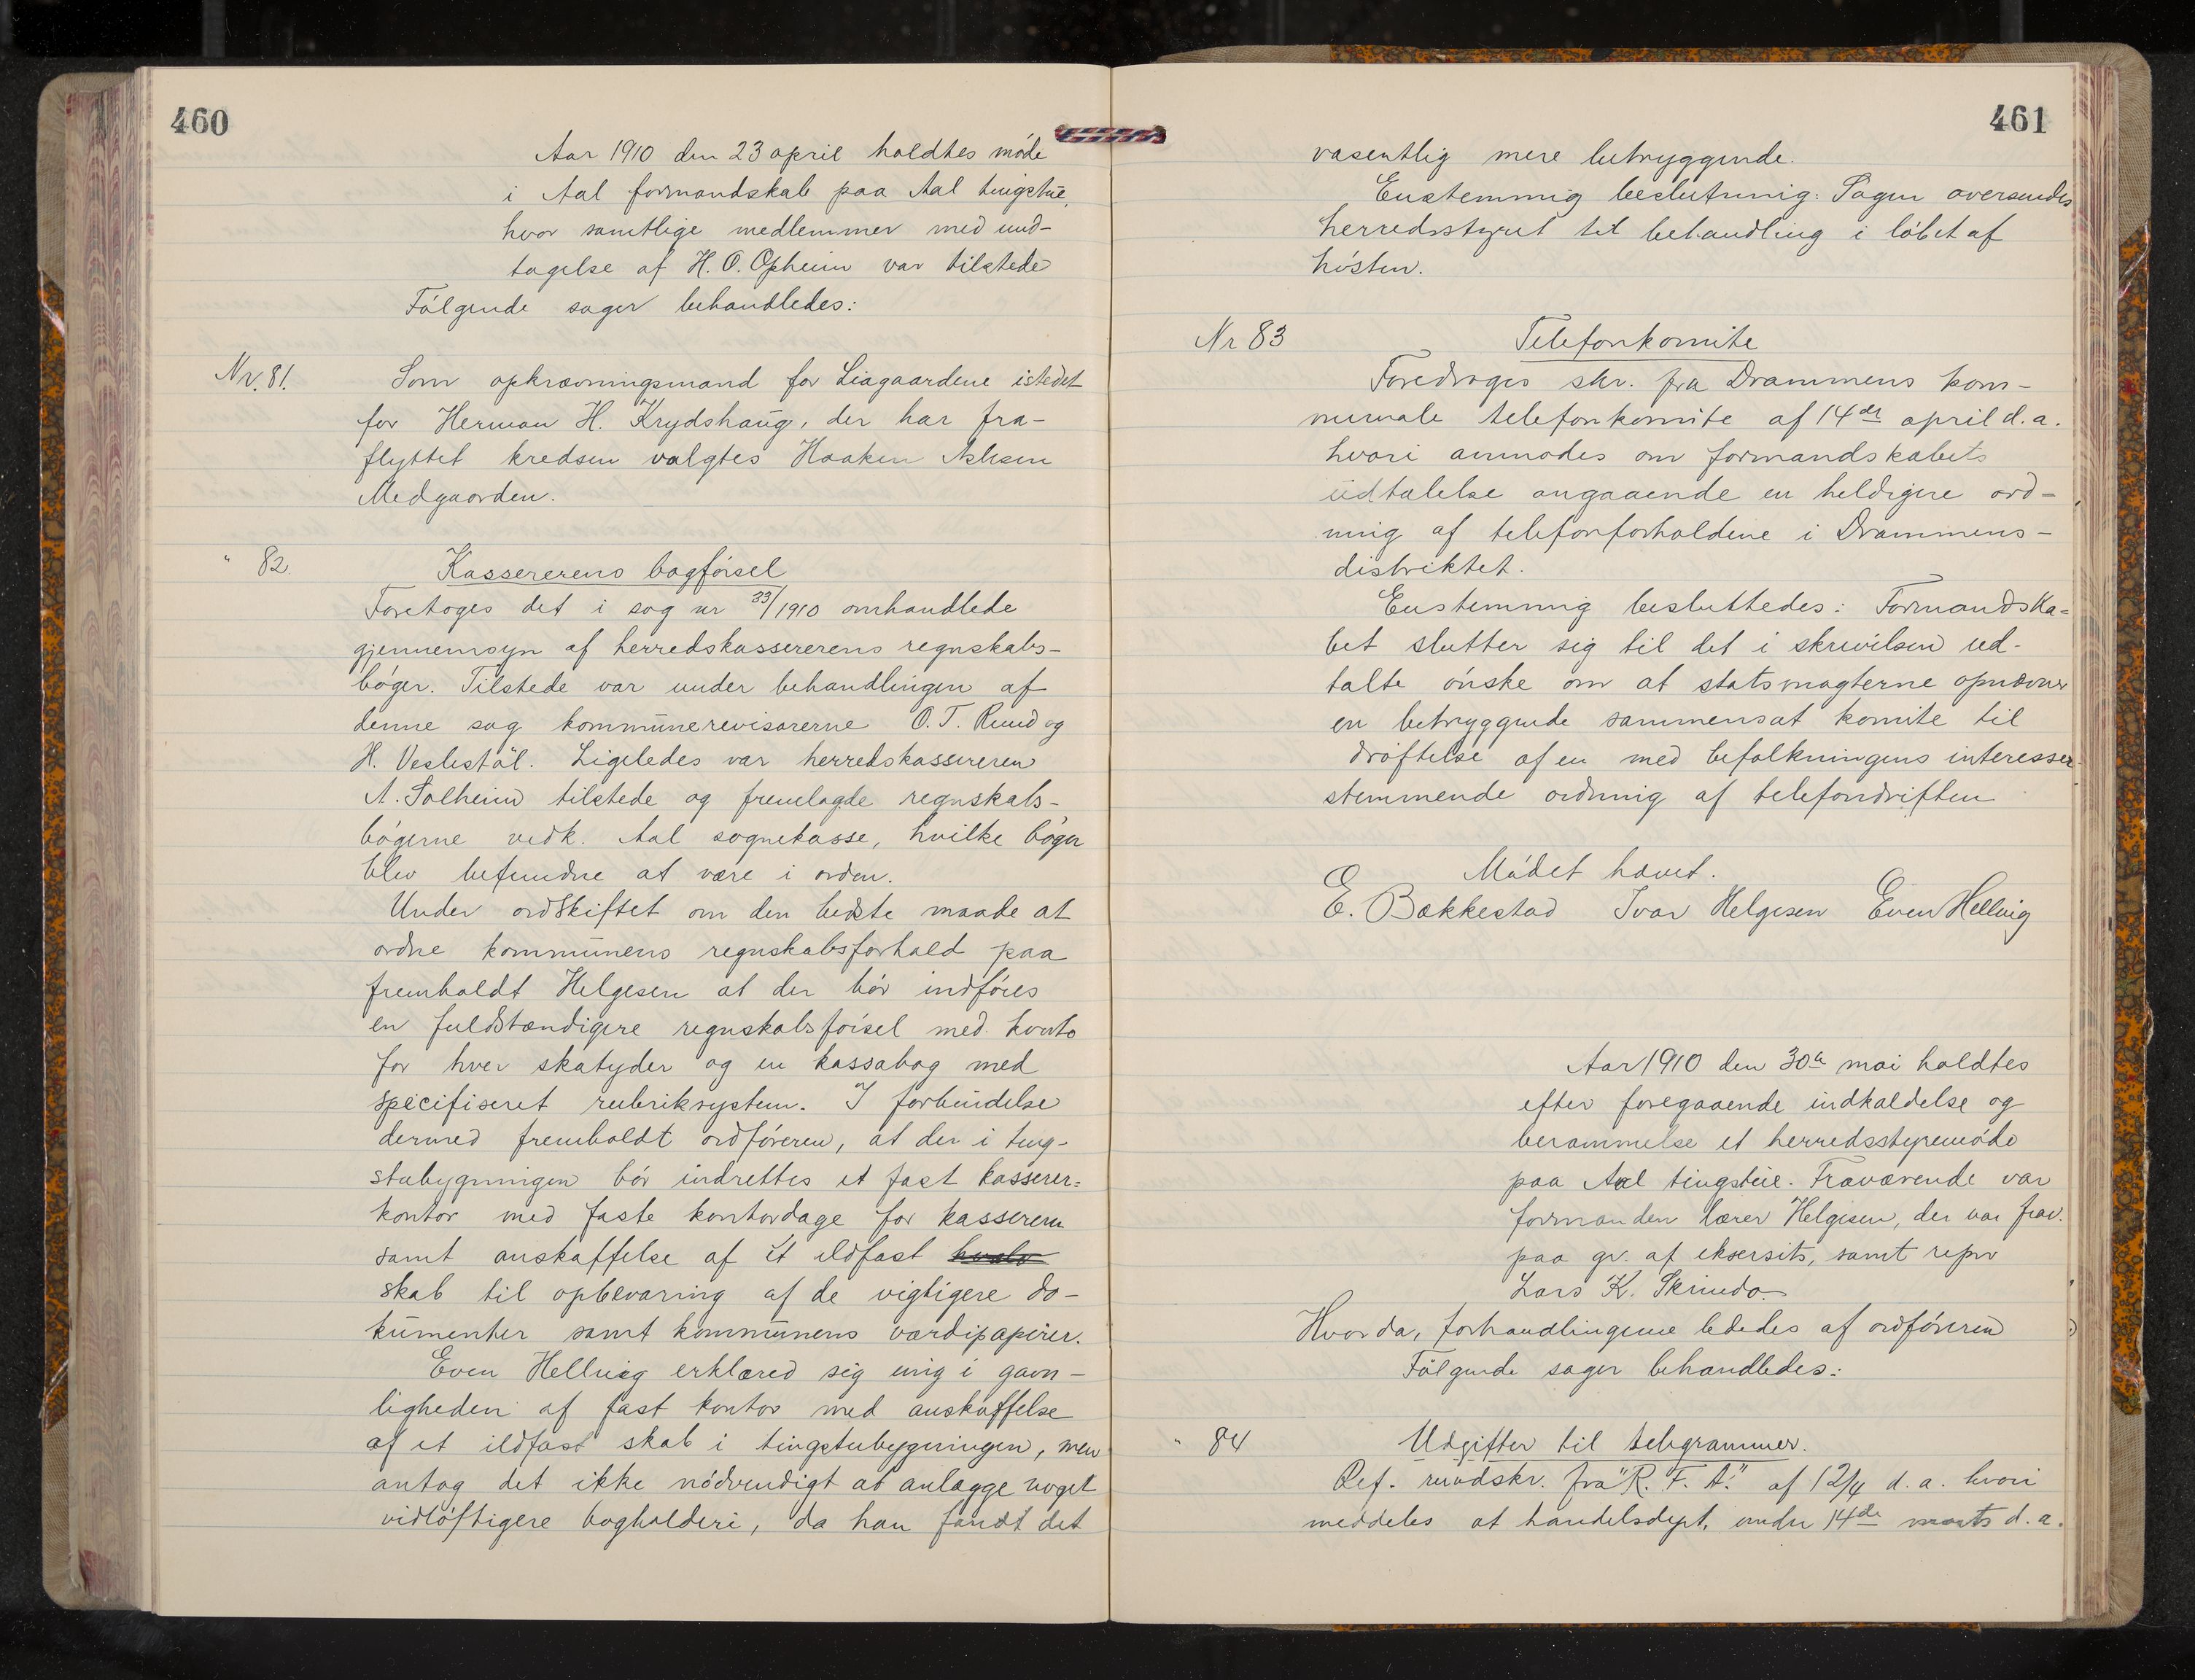 460
Aar 1910 den 23 april holdtes møde
i Aal formandskab paa Aal tingstue,
hvor samtlige medlemmer med und-
tagelse af H. O. Opheim var tilstede
Følgende sager behandledes:
Nr. 81. Som opkrævningsmand for Liagaardene istedet
for Herman H. Krydshaug, der har fra-
flyttet kredsen valgtes Haaken
Medgaarden.
" 82. Kassererens bogførsel
Foretoges det i sag nr 33/1910 omhandlede
gjennemsyn af herredskassererens regnskabs-
bøger. Tilstede var under behandlingen af
denne sag kommunerevisorerne O. T. Ruud og
H. Veslestøl. Ligeledes var herredskassereren
A. Solheim tilstede og fremlagde regnskabs-
bøgerne vedk. Aal sognekasse, hvilke bøger
blev befundne at være i orden.
Under ordskiftet om den bedste maade at
ordne kommunens regnskabsforhold paa
fremholdt Helgesen at der bør indføres
en fuldstændigere regnskabsførsel med konto
for hver skatyder og en kassabog med
specifiseret rubriksystem. I forbindelse
dermed fremholdt ordføreren, at der i ting-
stubygningen bør indrettes et fast kasserer=
kontor med faste kontordage for kasseren
samt anskaffelse af et ildfast
skab til opbevaring af de vigtigere do-
kumenter samt kommunens værdipapirer.
Even Hellvig erklæred sig enig i gavn-
ligheden af fast kontor med anskaffelse
af et ildfast skab i tingstubygningen, men
antog det ikke nødvendigt at anlægge noget
vidløftigere bogholderi, da han fandt det
461
væsentlig mere betryggende.
Enstemmig beslutning: Sagen oversendes
herredsstyret til behandling i løbet af
høsten.
Nr 83 Telefonkomite
Foredroges skr. fra Drammens kom-
munale telefonkomite af 14de april d. a.
hvori anmodes om formandskabets
udtalelse angaaende en heldigere ord-
ning af telefonforholdene i Drammens-
distriktet.
Enstemmig besluttedes: Formandska=
bet slutter sig til det i skrivelsen ud-
talte ønske om at statsmagterne opnævner
en betryggende sammensat komite til
drøftelse af en med befolkningens interesser
stemmende ordning af telefondriften
Mødet hævet.
E. Bækkestad Ivar Helgesen Even Hellvig
Aar 1910 den 30te mai holdtes
efter foregaaende indkaldelse og
berammelse et herredsstyremøde
paa Aal tingstue. Fraværende var
formanden lærer Helgesen, der var frav.
paa gr. af eksersits, samt repr
Lars K. Skrindo.
Hvorda, forhandlingerne lededes af ordføreren
Følgende sager behandledes:
" 84 Udgifter til telegrammer.
Ref. rundskr. fra "R. F. A." af 12/4 d. a. hvori
meddeles at handelsdept. under 14de marts d. a.